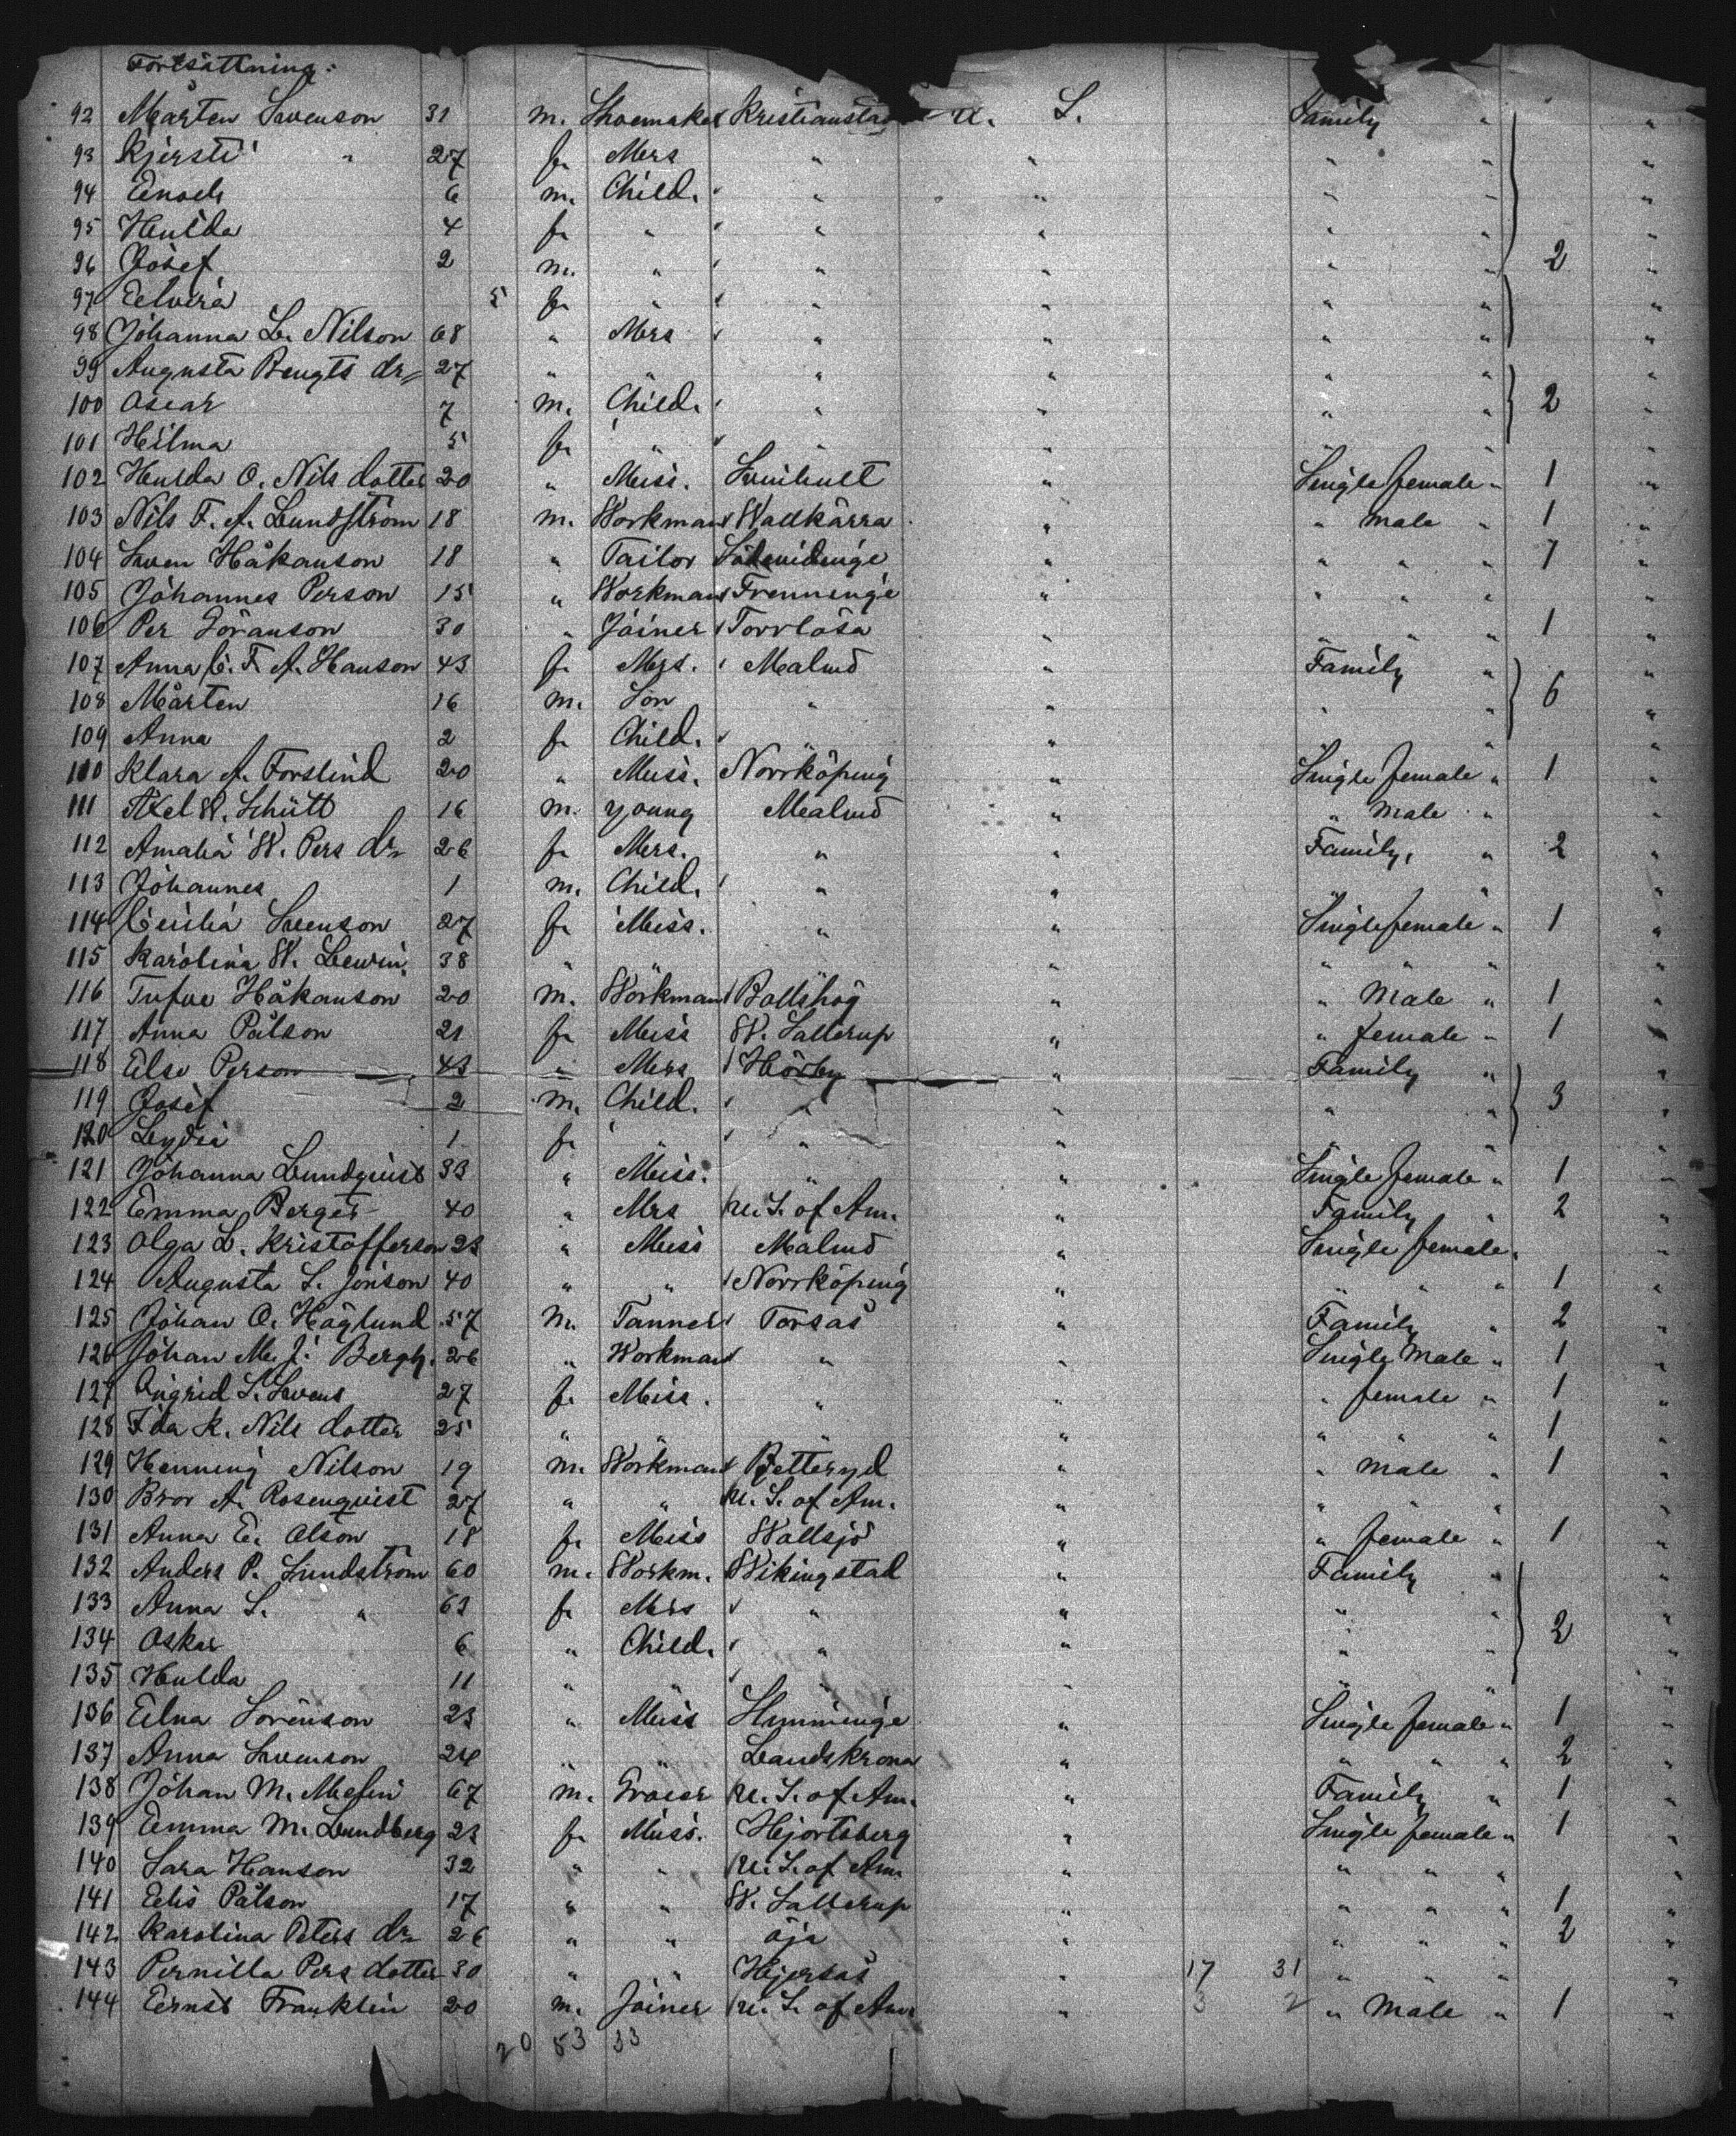 Fortsättning:
92 Mårten Svenson 31 m. Shoemaker Kristianstad U. S. Family "
93 Kjersti " 27 f. Mrs " " " " "
94 Enock 6 m. Child. " " " " "
95 Hulda 4 f. " " " " " "
96 Josef 2 m. " " " " " 2 "
97 Elvira 5 f. " " " " " "
98 Johanna L. Nilson 68 " Mrs " " " " "
99 Augusta Bengts dr 27 " " " " " " "
100 Oscar 7 m. Child. " " " " 2 "
101 Hilma 5 f. " " " " " "
102 Hulda O. Nils dotter 20 " Miss. " Single female " 1 "
103 Nils F. A. Lundström 18 m. Workman Wallkärra " " male " 1 "
104 Sven Håkanson 18 " Tailor " " " " 1 "
105 Johannes Person 15 " Workman Frenninge " " " " "
106 Per Göranson 30 " Joiner Torrlösa " " " " 1 "
107 Anna C. F. A. Hanson 43 f. Mrs. Malmö " Family " "
108 Mårten 16 m. Son " " " " 6 "
109 Anna 2 f. Child. " " " "
110 Klara A. Forslind 20 " Miss. Norrköping " Single female " 1 "
111 Axel W. Schütt 16 m. young Malmö " " Male " "
112 Amalia W. Pers dr 26 f. Mrs. " " Family, " 2 "
113 Johannes 1 m. Child. " " " " "
114 Cecilia Svenson 27 f. Miss. " " Single female " 1 "
115 Karolina W. Lewin 38 " " " " " " " "
116 Tufve Håkanson 20 m. Workman " " Male " 1 "
117 Anna Pålson 21 f. Miss W. Sallerup " " female " 1 "
118 Else Person 43 " Mrs Hörby " Family " "
119 Josef 2 m. Child. " " " " 3 "
120 Lydia 1 f. " " " " "
121 Johanna Lundquist 33 " Miss. " " Single female " 1 "
122 Emma Berger 40 " Mrs U. S. of Am. " Family " 2 "
123 Olga L. Kristofferson 23 " Miss Malmö " Single female " "
124 Augusta S. Jonson 40 " " Norrköping " " " " 1 "
125 Johan O. Häglund 57 m. Tanner Torsås " Family " 2 "
126 Johan M. J. Bergh. 26 " Workman " " Single Male " 1 "
127 Ingrid S. Svens 27 f. Miss. " " " female " 1 "
128 Ida K. Nils dotter 25 " " " " " " " 1 "
129 Henning Nilson 19 m. Workman " " male " 1 "
130 Bror A. Rosenquist 27 " " U. S. of Am. " " " " "
131 Anna E. Olson 18 f. Miss Wallsjö " " female " 1 "
132 Anders P. Lundström 60 m. Workm. Wikingstad " Family " "
133 Anna S. " 63 f. Mrs " " " " "
134 Oskar 6 " Child. " " " " 2 "
135 Hulda 11 " " " " " " "
136 Elna Sörenson 23 " Miss " Single female " 1 "
137 Anna Svenson 24 " " Landskrona " " " " 2 "
138 Johan M. 67 m. Grocer U. S. of Am. " Family " 1 "
139 Emma M. Lundberg 23 f. Miss. Hjortsberg " Single female " 1 "
140 Sara Hanson 32 " " U. S. of Am. " " " " "
141 Elis Pålson 17 " " W. Sallerup " " " " 1 "
142 Karolina Peters dr 26 " " Öja " " " " 2 "
143 Pernilla Pers dotter 30 " " Hjersås " 17 31 " " " "
144 Ernst Franklin 20 m. Joiner U. S. of Am " 3 2 " Male " 1 "
20 53 33